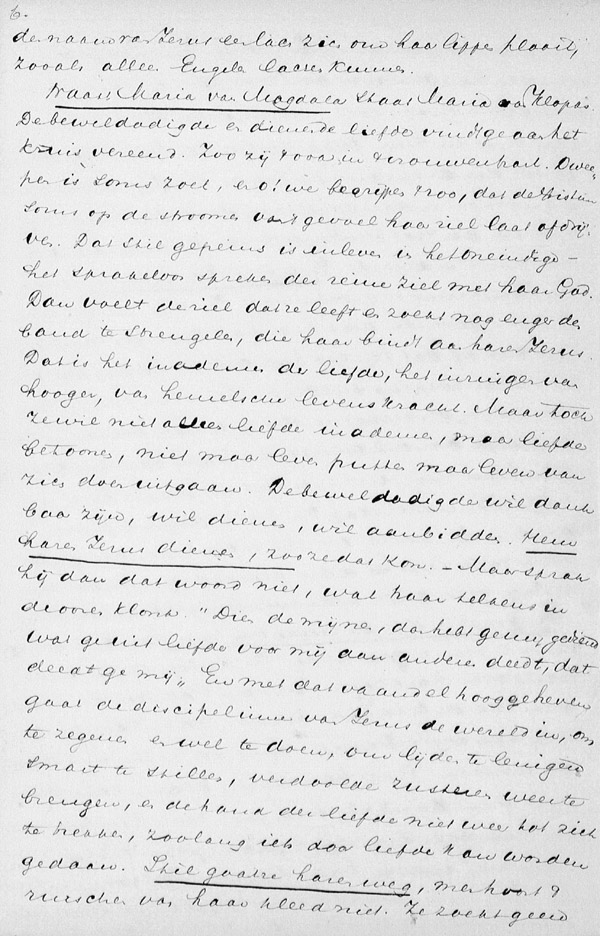 6.
de naam van Jezus der lach zich om haar lippen plooit,
zooals alleen Engelen lachen kunnen.
Naast Maria van Magdala staat Maria van Klopas.
De beweldadigde en dienende liefde vindt ge aan het
kruis vereend. Zoo zij 't ook in 't vrouwenhart. Dwee-
pen is soms zoet, en o! we begrijpen 't zoo, dat de Christin
soms op de stroomen van 't gevoel haar ziel laat afdrij-
ven. Dat stil gepeins is inleven in het Oneindige —
het sprakeloos spreken der reine ziel met haar God.
Dan voelt de ziel dat ze leeft en zoekt nog enger den
band te strengelen, die haar bindt aan haren Jezus.
Dat is het inademen der liefde, het indringen van
hooger, van hemelsche levenskracht. Maar toch
ze wil niet alleen liefde inademen, maar liefde
betoonen, niet maar leven putten maar leven van
zich doen uitgaan. De beweldadigde wil dank-
baar zijn, wil dienen, wil aanbidden. Hem
haren Jezus dienen, zoo ze dat kon. — Maar sprak
hij dan dat woord niet, wat haar telkens in
de ooren klonk. "Dien de mijnen, dan hebt ge mij gediend
wat ge uit liefde voor mij aan anderen deedt, dat
deedt ge mij". En met dat vaandel hoog geheven
gaat de discipelinne van Jezus de wereld in, om
te zegenen en wel te doen, om lijden te lenigen
smart te stillen, verdoolde zusteren weer te
brengen, en de hand der liefde niet weer tot zich
te trekken, zoolang iets door liefde kan worden
gedaan. Stil gaat ze haren weg, men hoort 't
ruischen van haar kleed niet. Ze zoekt geen